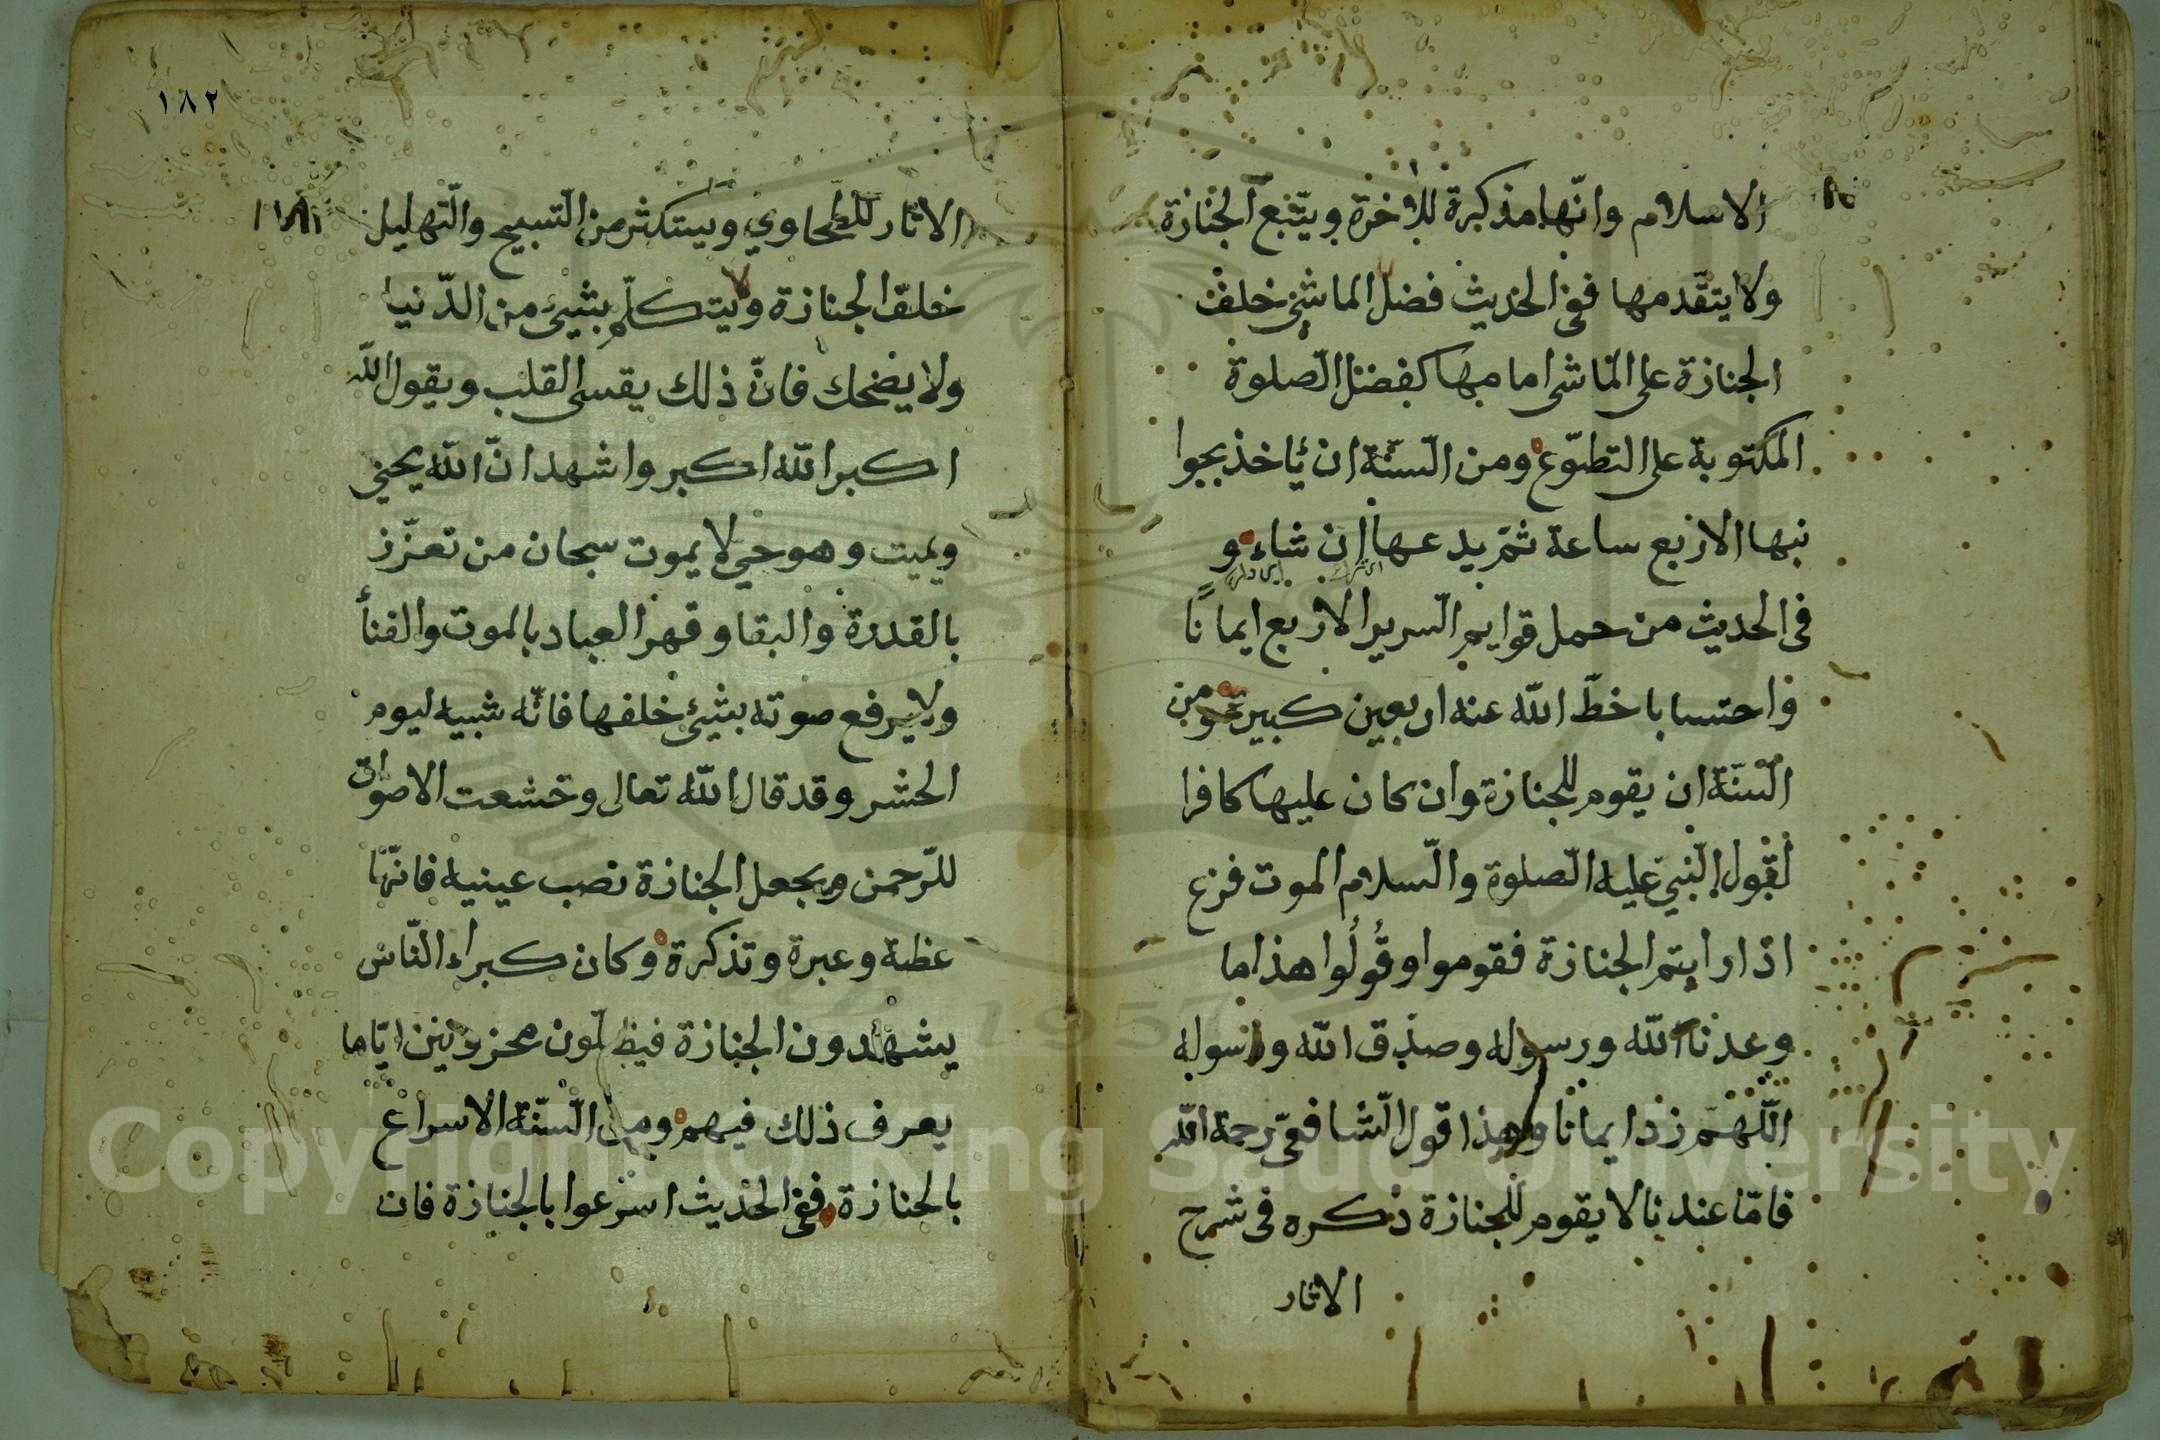 الاسلام وانّها مذكرة للاخرة ويتّبع الجنازة
ولا يتقّدمها ففى الحديث فضل الماشى خلف
الجنازة على الماشى امامها كفضل الصّلوة
المكتوبة على التطوّع ومن السّنّة ان ياخذ بجوا
نبها الاربع ساعة ثمّ يدعها ان شاء و
فى الحديث من حمل قوايم السّرير الاربع ايمانًا
واحتسابا خطّ الله عنه اربعين كبيرة ومن
السّنّة ان يقوم للجنازة وان كان عليها كافرا
لقول النّبى عليه الصّلوة والسّلام الموت فزع
اذا رايتم الجنازة فقوموا وقُولُوا هذا ما
وعدنا الله ورسوله وصدق الله ورسوله
اللّهمّ زد ايمانا وهذا قول الشّافعىّ رحمة الله
فامّا عندنا لا يقوم للجنازة ذكره فى شرح
الاثار
١٨٢
الاثار للطّحاوي ويستكثر من التّسبيح والتّهليل
خلف الجنازة ولا يتكلّم بشيئ من الدّنيا
ولا يضحك فانّ ذلك يقسى القلب ويقول الله
اكبر الله اكبر واشهد انّ الله يحيى
ويميت وهو حي لا يموت سبحان من تعزّز
بالقدرة والبقا وقهر العباد بالموت والفنأ
ولا يرفع صوته بشيئ خلفها فانّه شبيه ليوم
الحشر وقد قال الله تعالى وخشعت الاصوات
للرّحمن ويجعل الجنازة نصب عينيه فانّها
عظة وعبرة وتذكرة وكان كبراء النّاس
يشهدون الجنازة فيظلّون محزونين ايّاما
يعرف ذلك فيهم ومن السّنّة الاسراع
بالجنازة ففى الحديث اسرعوا بالجنازة فان
Copyright © King Saud University
1957